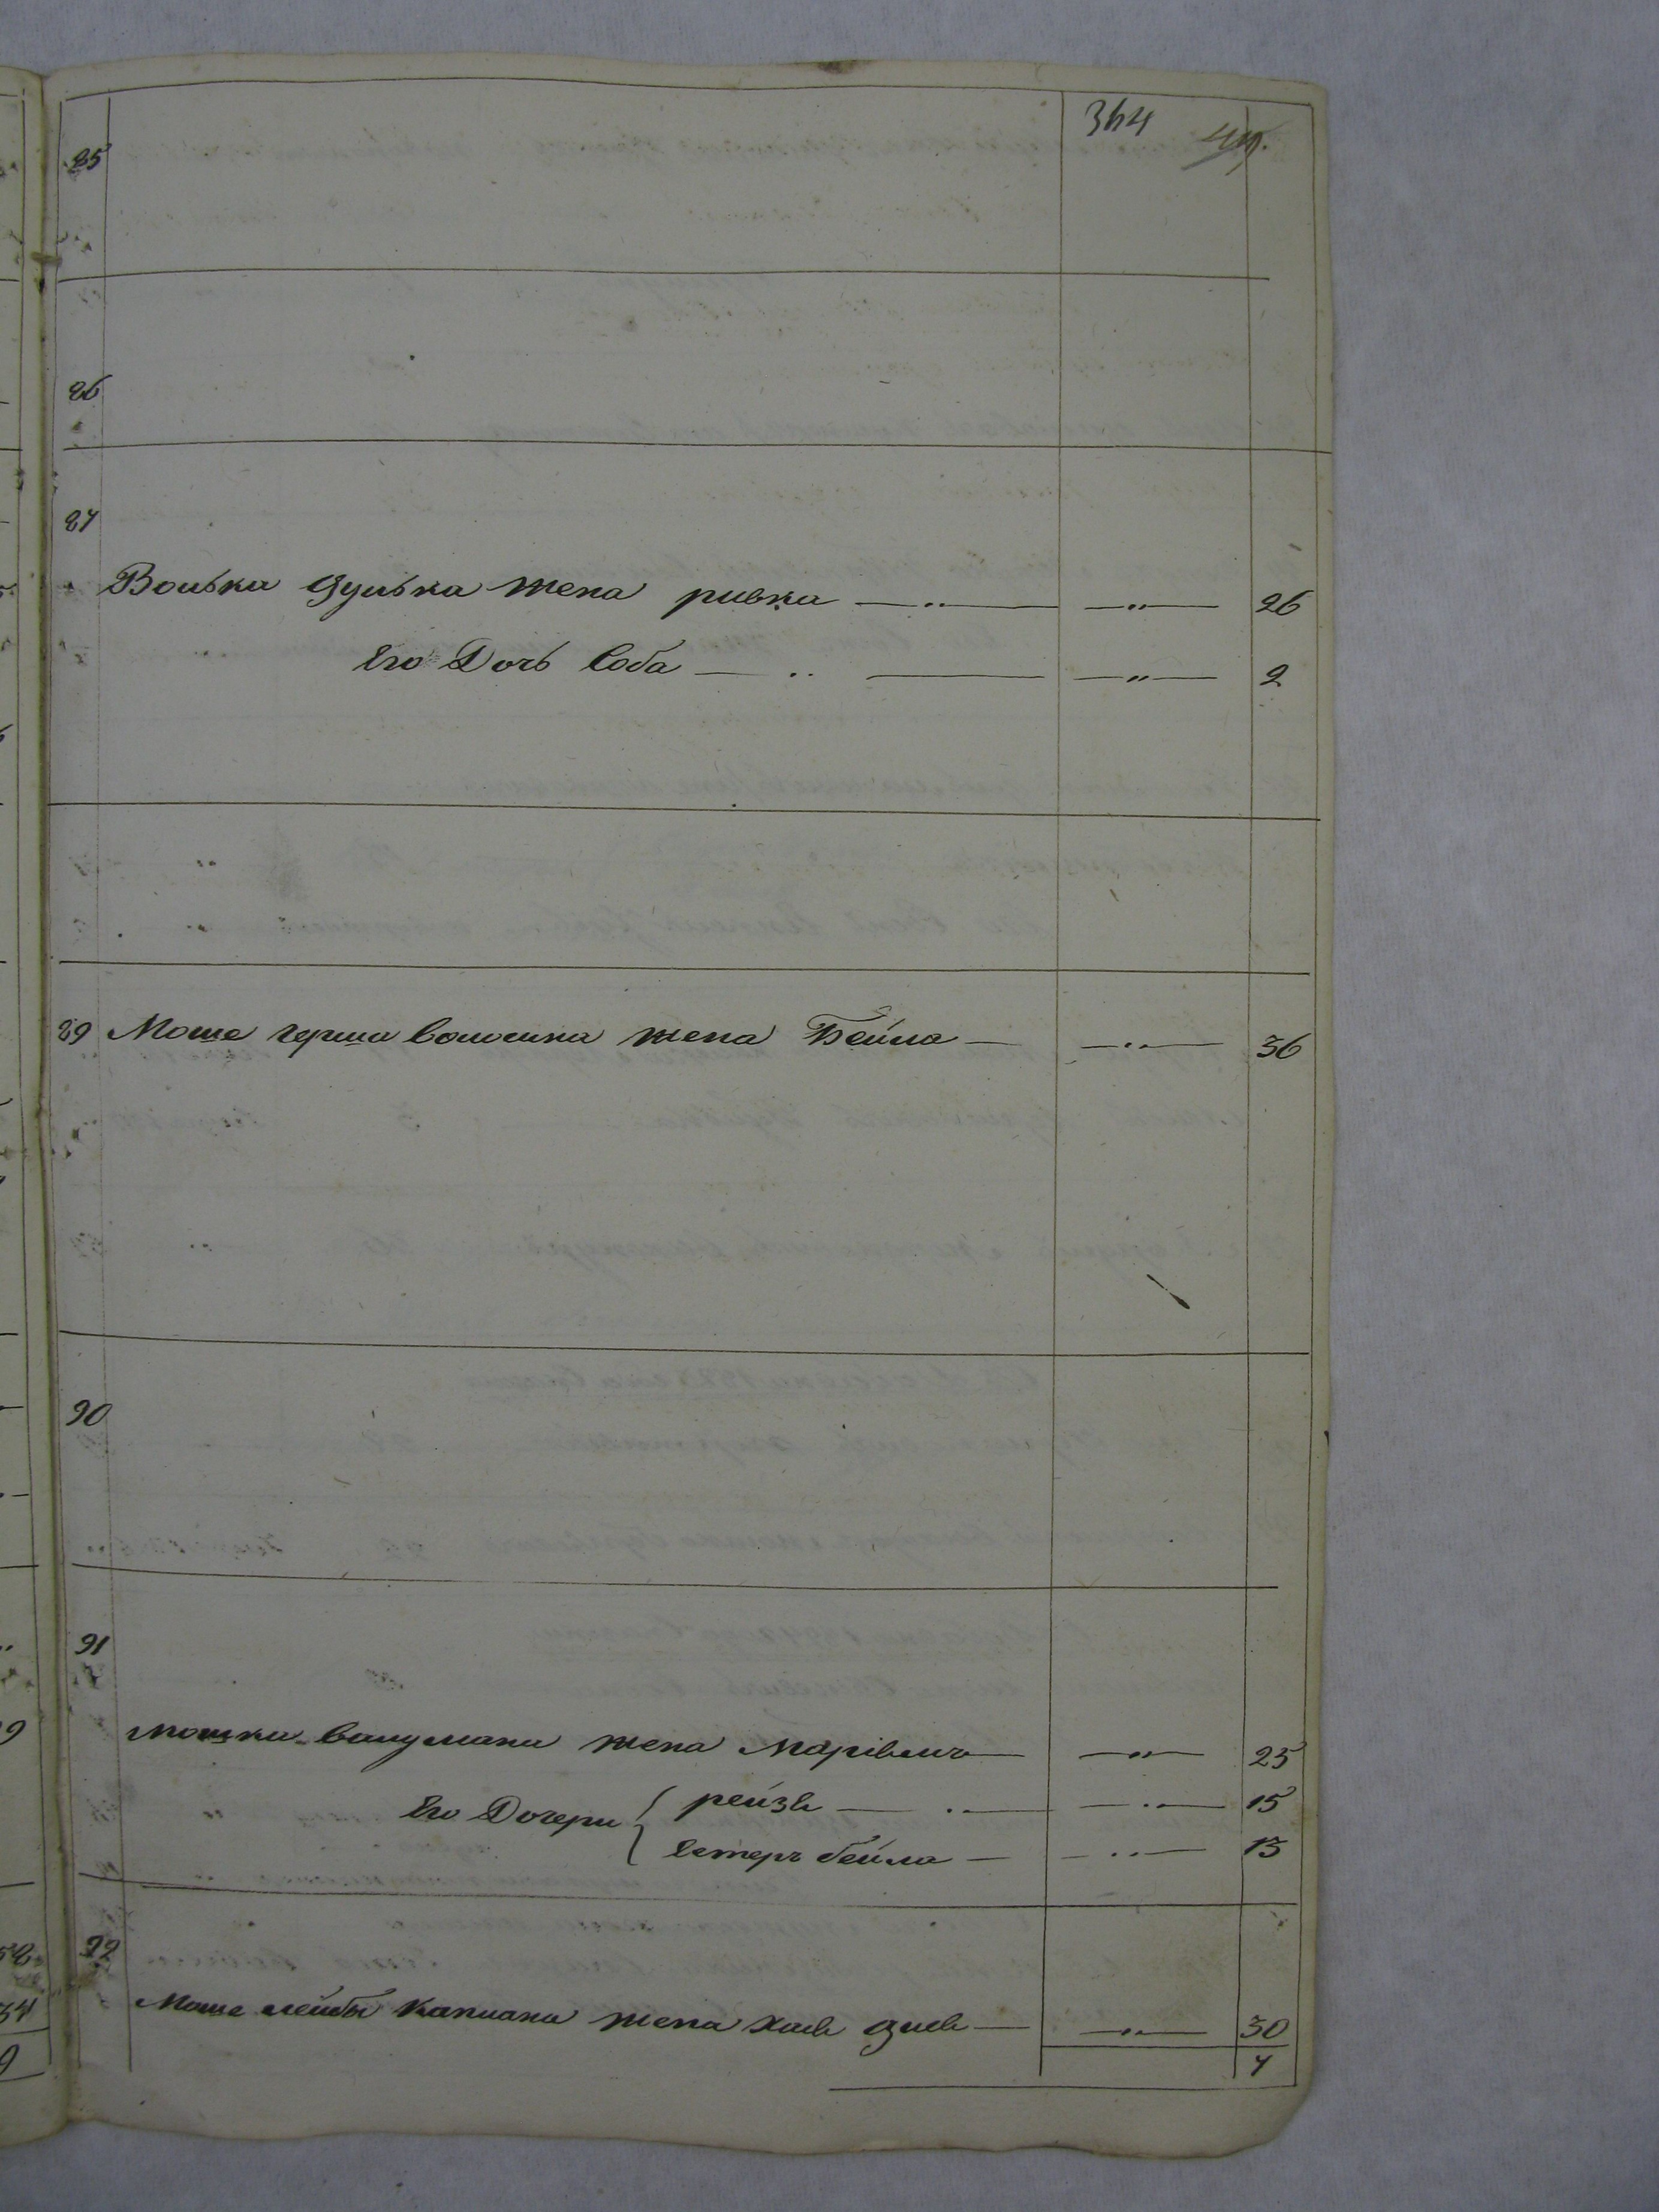 364
85
86
87
Волька Зулька жена ривка — „ — — „ — 26
его Дочь Соба — „ — — „ — 2
89 Моше герша волошина жена Бейла — — „ — 36
90
91
мошка валумана жена Маріемъ — — „ — 25
его Дочери { рейзе — „ — — „ — 15
естеръ бейла — — „ — 13
92
Моше лейбы каплана жена хае — — „ — 30
7